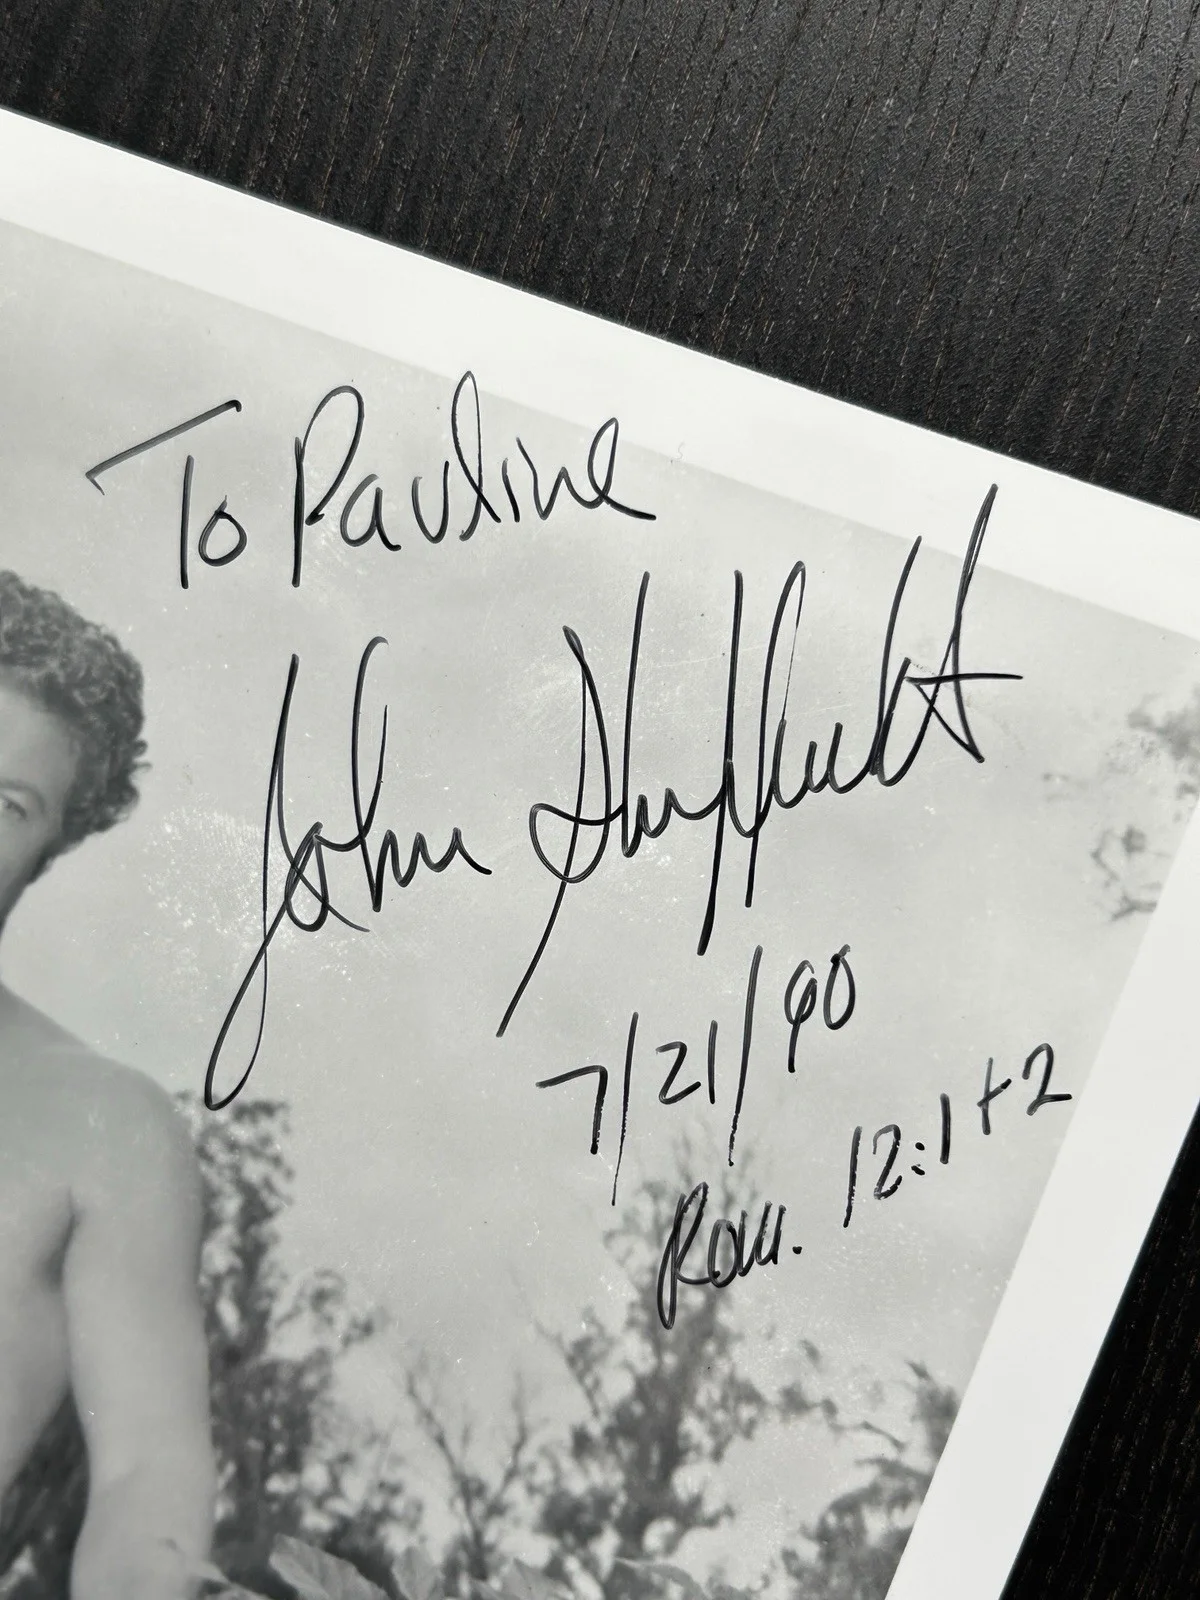 To Pauline
John Shepphird
7/21/90
Rom. 12:1+2